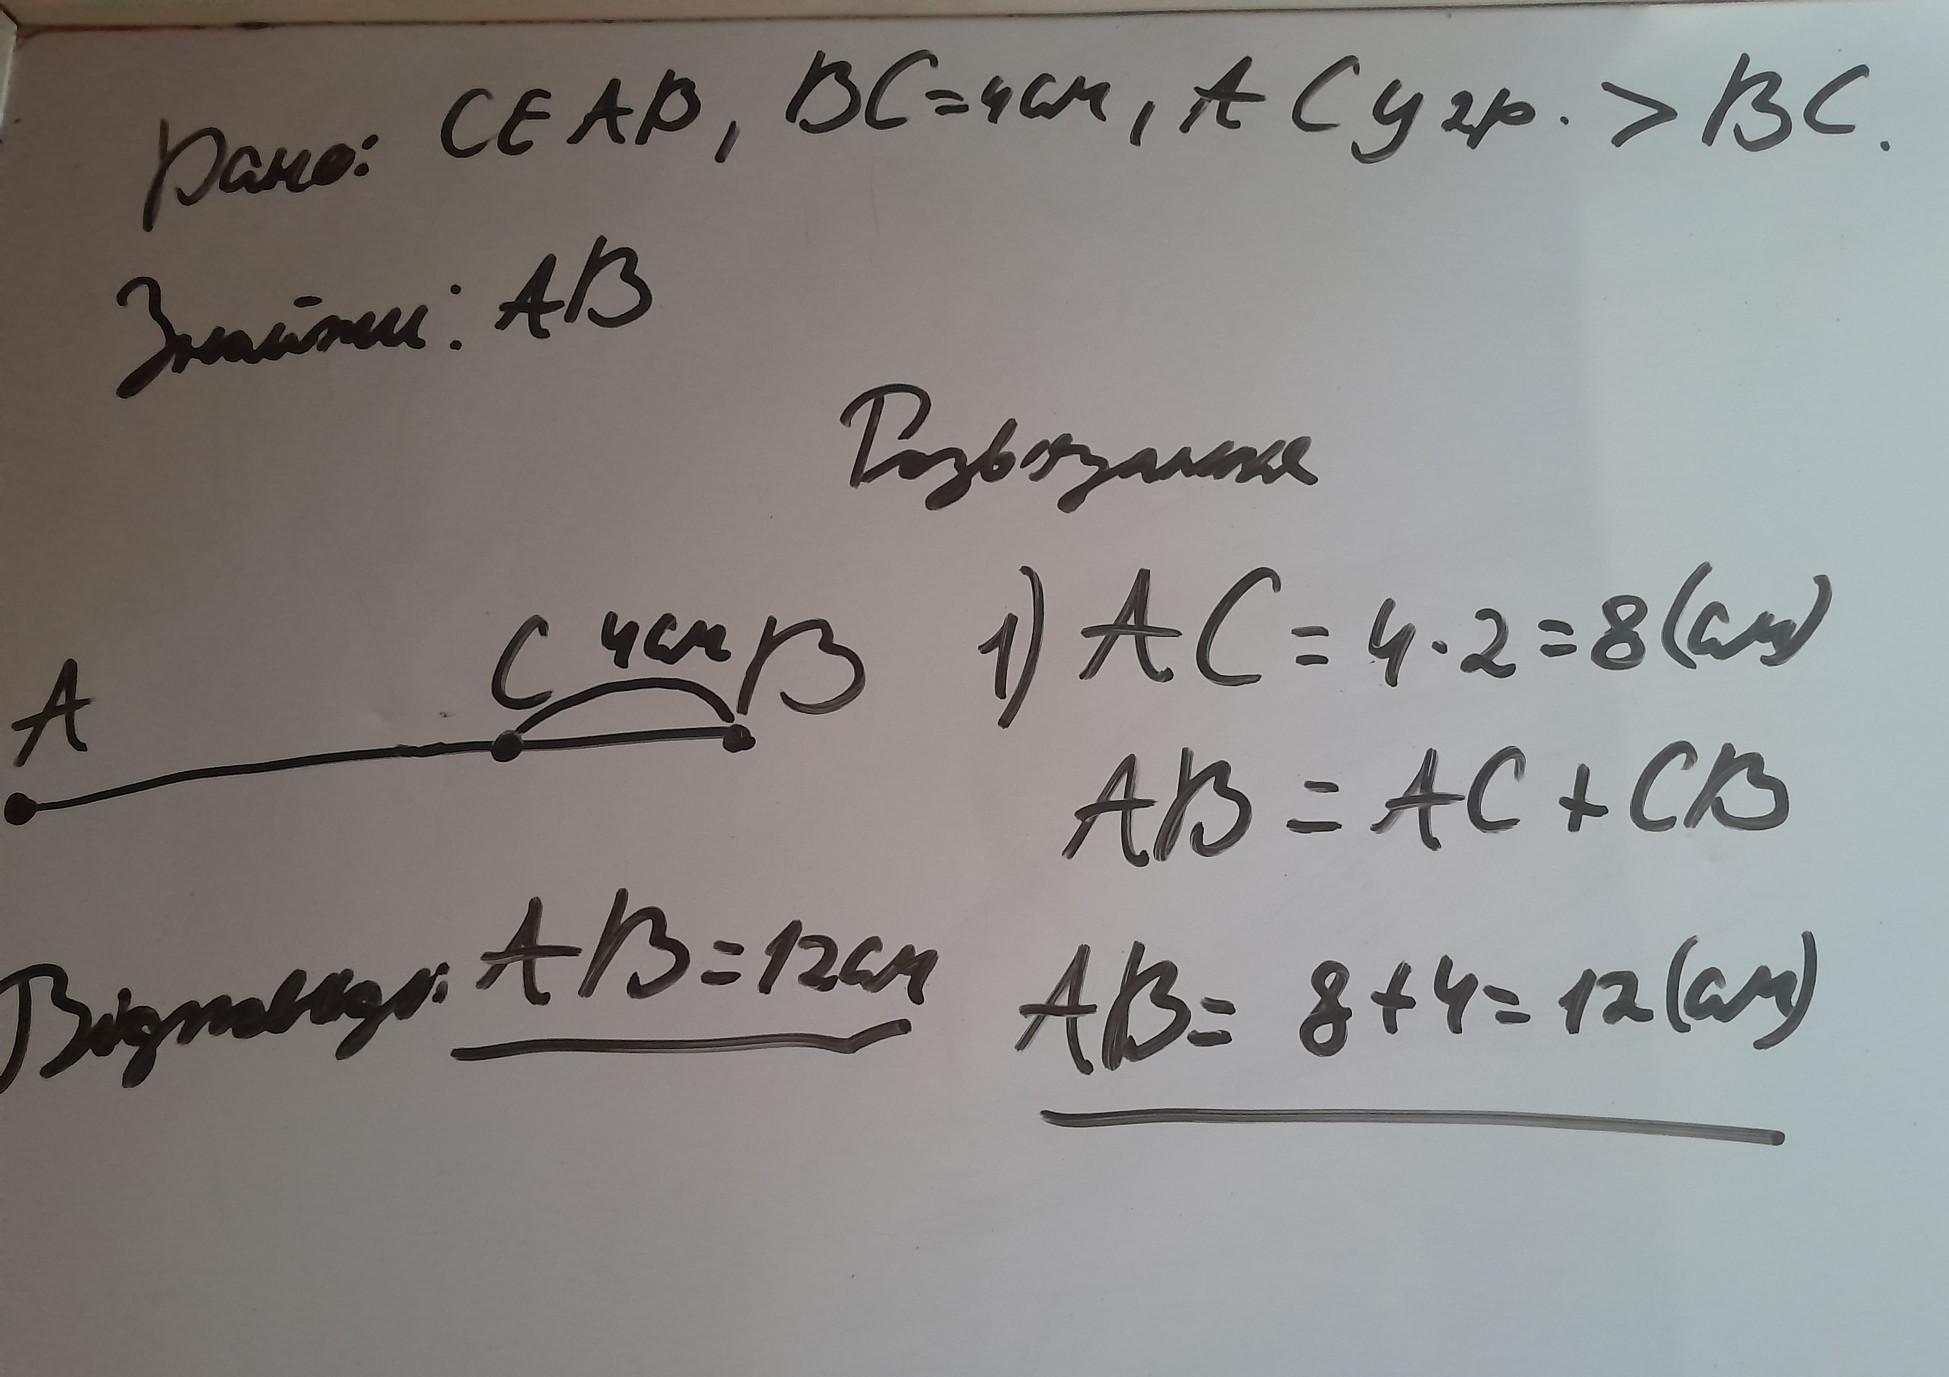 Дано: C∈AB, BC=4см, AC у 2р. > BC.
Знайти: AB
Розв'язання
A C 4см B
1) AC = 4·2=8(см)
AB = AC + CB
AB= 8+4=12(см)
Відповідь: AB=12см